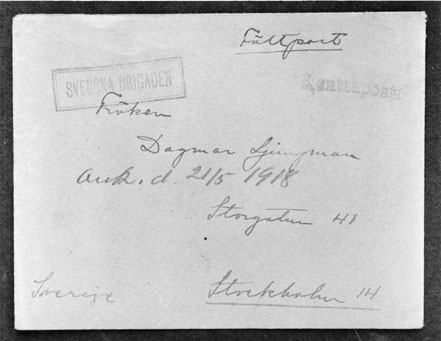 Fältpost
SVENSKA BRIGADEN
Kenttäposti
Fröken
Dagmar Ljungman
ank. d. 21/5 1918
Storgatan 41
Sverige
Stockholm 14